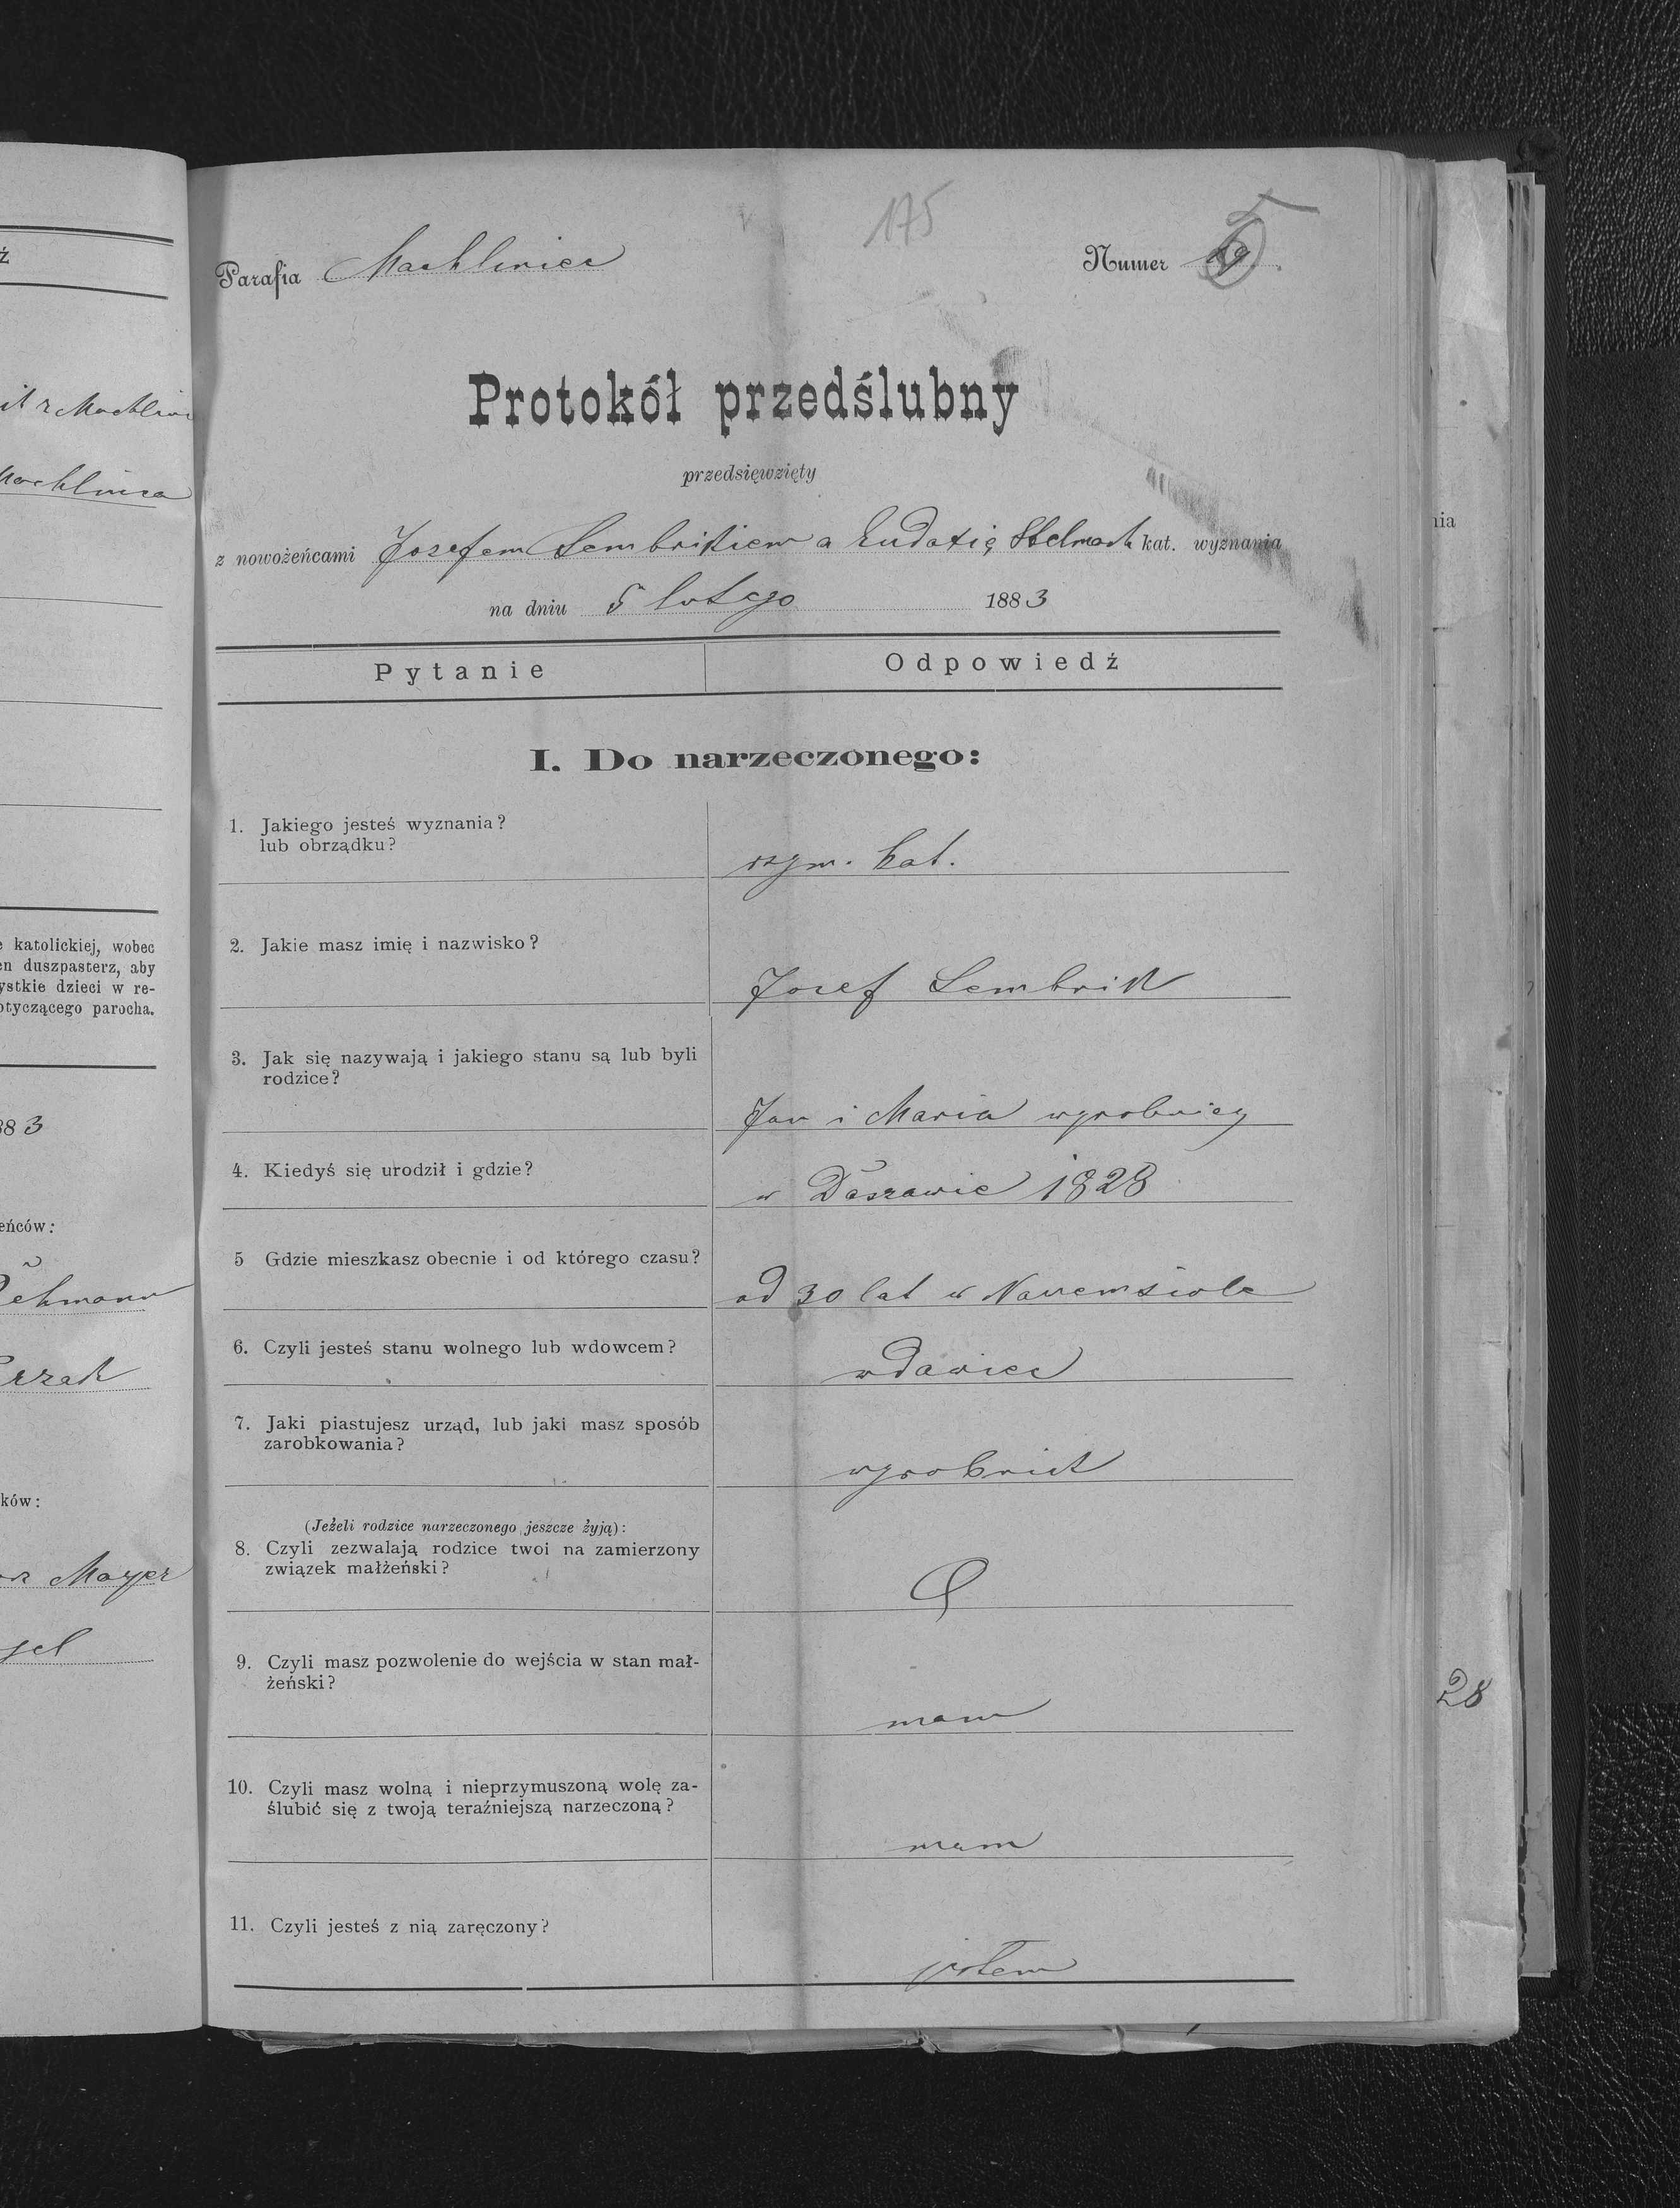 175
Parafia Machliniec
Numer
Protokół przedślubny
przedsięwzięty
z nowożeńcami Josefem Sembrikiem a Eudoxią Stelmach kat. wyznania
na dniu 5 lutego 1883
Pytanie Odpowiedź
I. Do narzeczonego:
1. Jakiego jesteś wyznania?
lub obrządku?
rzym. kat.
2. Jakie masz imię i nazwisko?
Josef Sembrik
3. Jak się nazywają i jakiego stanu są lub byli
rodzice?
Jan i Maria wyrobnicy
4. Kiedyś się urodził i gdzie?
w Daszawie 1828
5 Gdzie mieszkasz obecnie i od którego czasu?
od 30 lat w
6. Czyli jesteś stanu wolnego lub wdowcem?
wdowiec
7. Jaki piastujesz urząd, lub jaki masz sposób
zarobkowania?
wyrobnik
(Jeżeli rodzice narzeczonego jeszcze żyją):
8. Czyli zezwalają rodzice twoi na zamierzony
związek małżeński?
9. Czyli masz pozwolenie do wejścia w stan mał-
żeński?
mam
10. Czyli masz wolną i nieprzymuszoną wolę za-
ślubić się z twoją teraźniejszą narzeczoną?
mam
11. Czyli jesteś z nią zaręczony?
jestem
ź
katolickiej, wobec
en duszpasterz, aby
ystkie dzieci w re-
otyczącego parocha.
883
eńców:
ków:
Mayer
nia
28